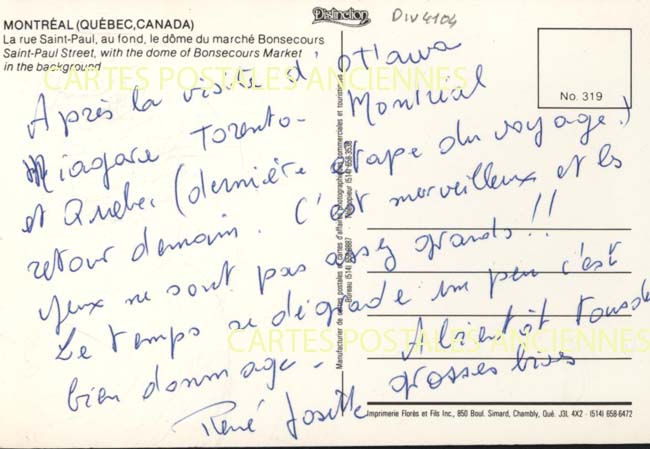 MONTRÉAL (QUÉBEC,CANADA)
La rue Saint-Paul, au fond, le dôme du marché Bonsecours
Saint-Paul Street, with the dome of Bonsecours Market
in the background
Distinction
DIV4104
No. 319
CARTES POSTALES ANCIENNES
Après la visite d'Ottawa
Niagara Toronto - Montréal
et Québec (dernière étape du voyage!)
retour demain. C'est merveilleux et les
yeux ne sont pas assez grands!!
Le temps se dégrade un peu c'est
bien dommage - A bientôt
grosses bises
René Josette
CARTES POSTALES ANCIENNES
Manufacturier de cartes postales et cartes d'affaires photographiques, commerciales et touristiques
Bureau (514) 658-6887 - Télécopieur (514) 658-3538
Imprimerie Florès et Fils Inc., 850 Boul. Simard, Chambly, Qué. J3L 4X2 - (514) 658-6472